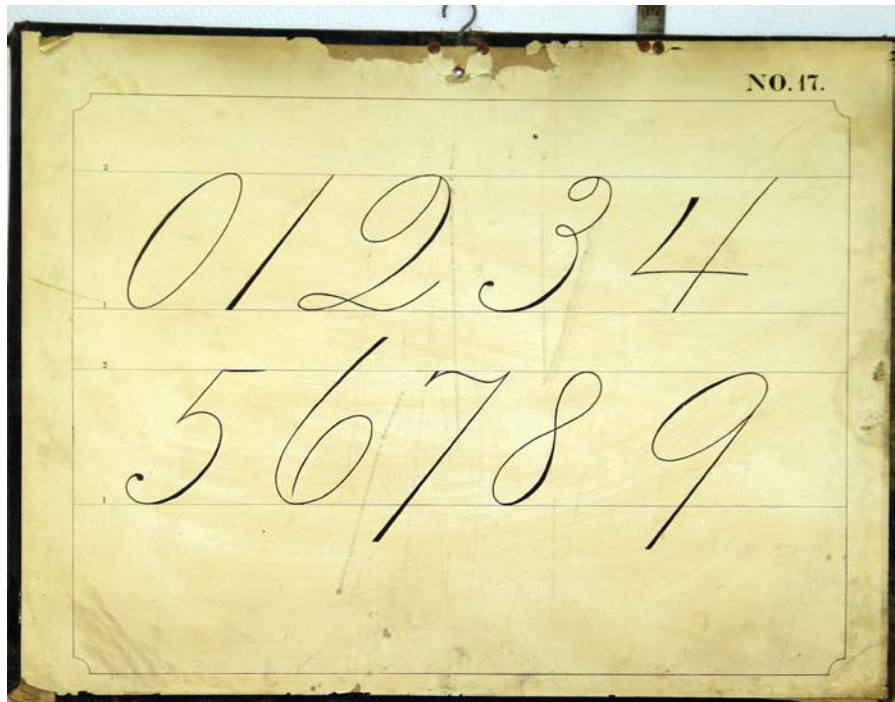 NO. 17.
2
0 1 2 3 4
1
2
5 6 7 8 9
1